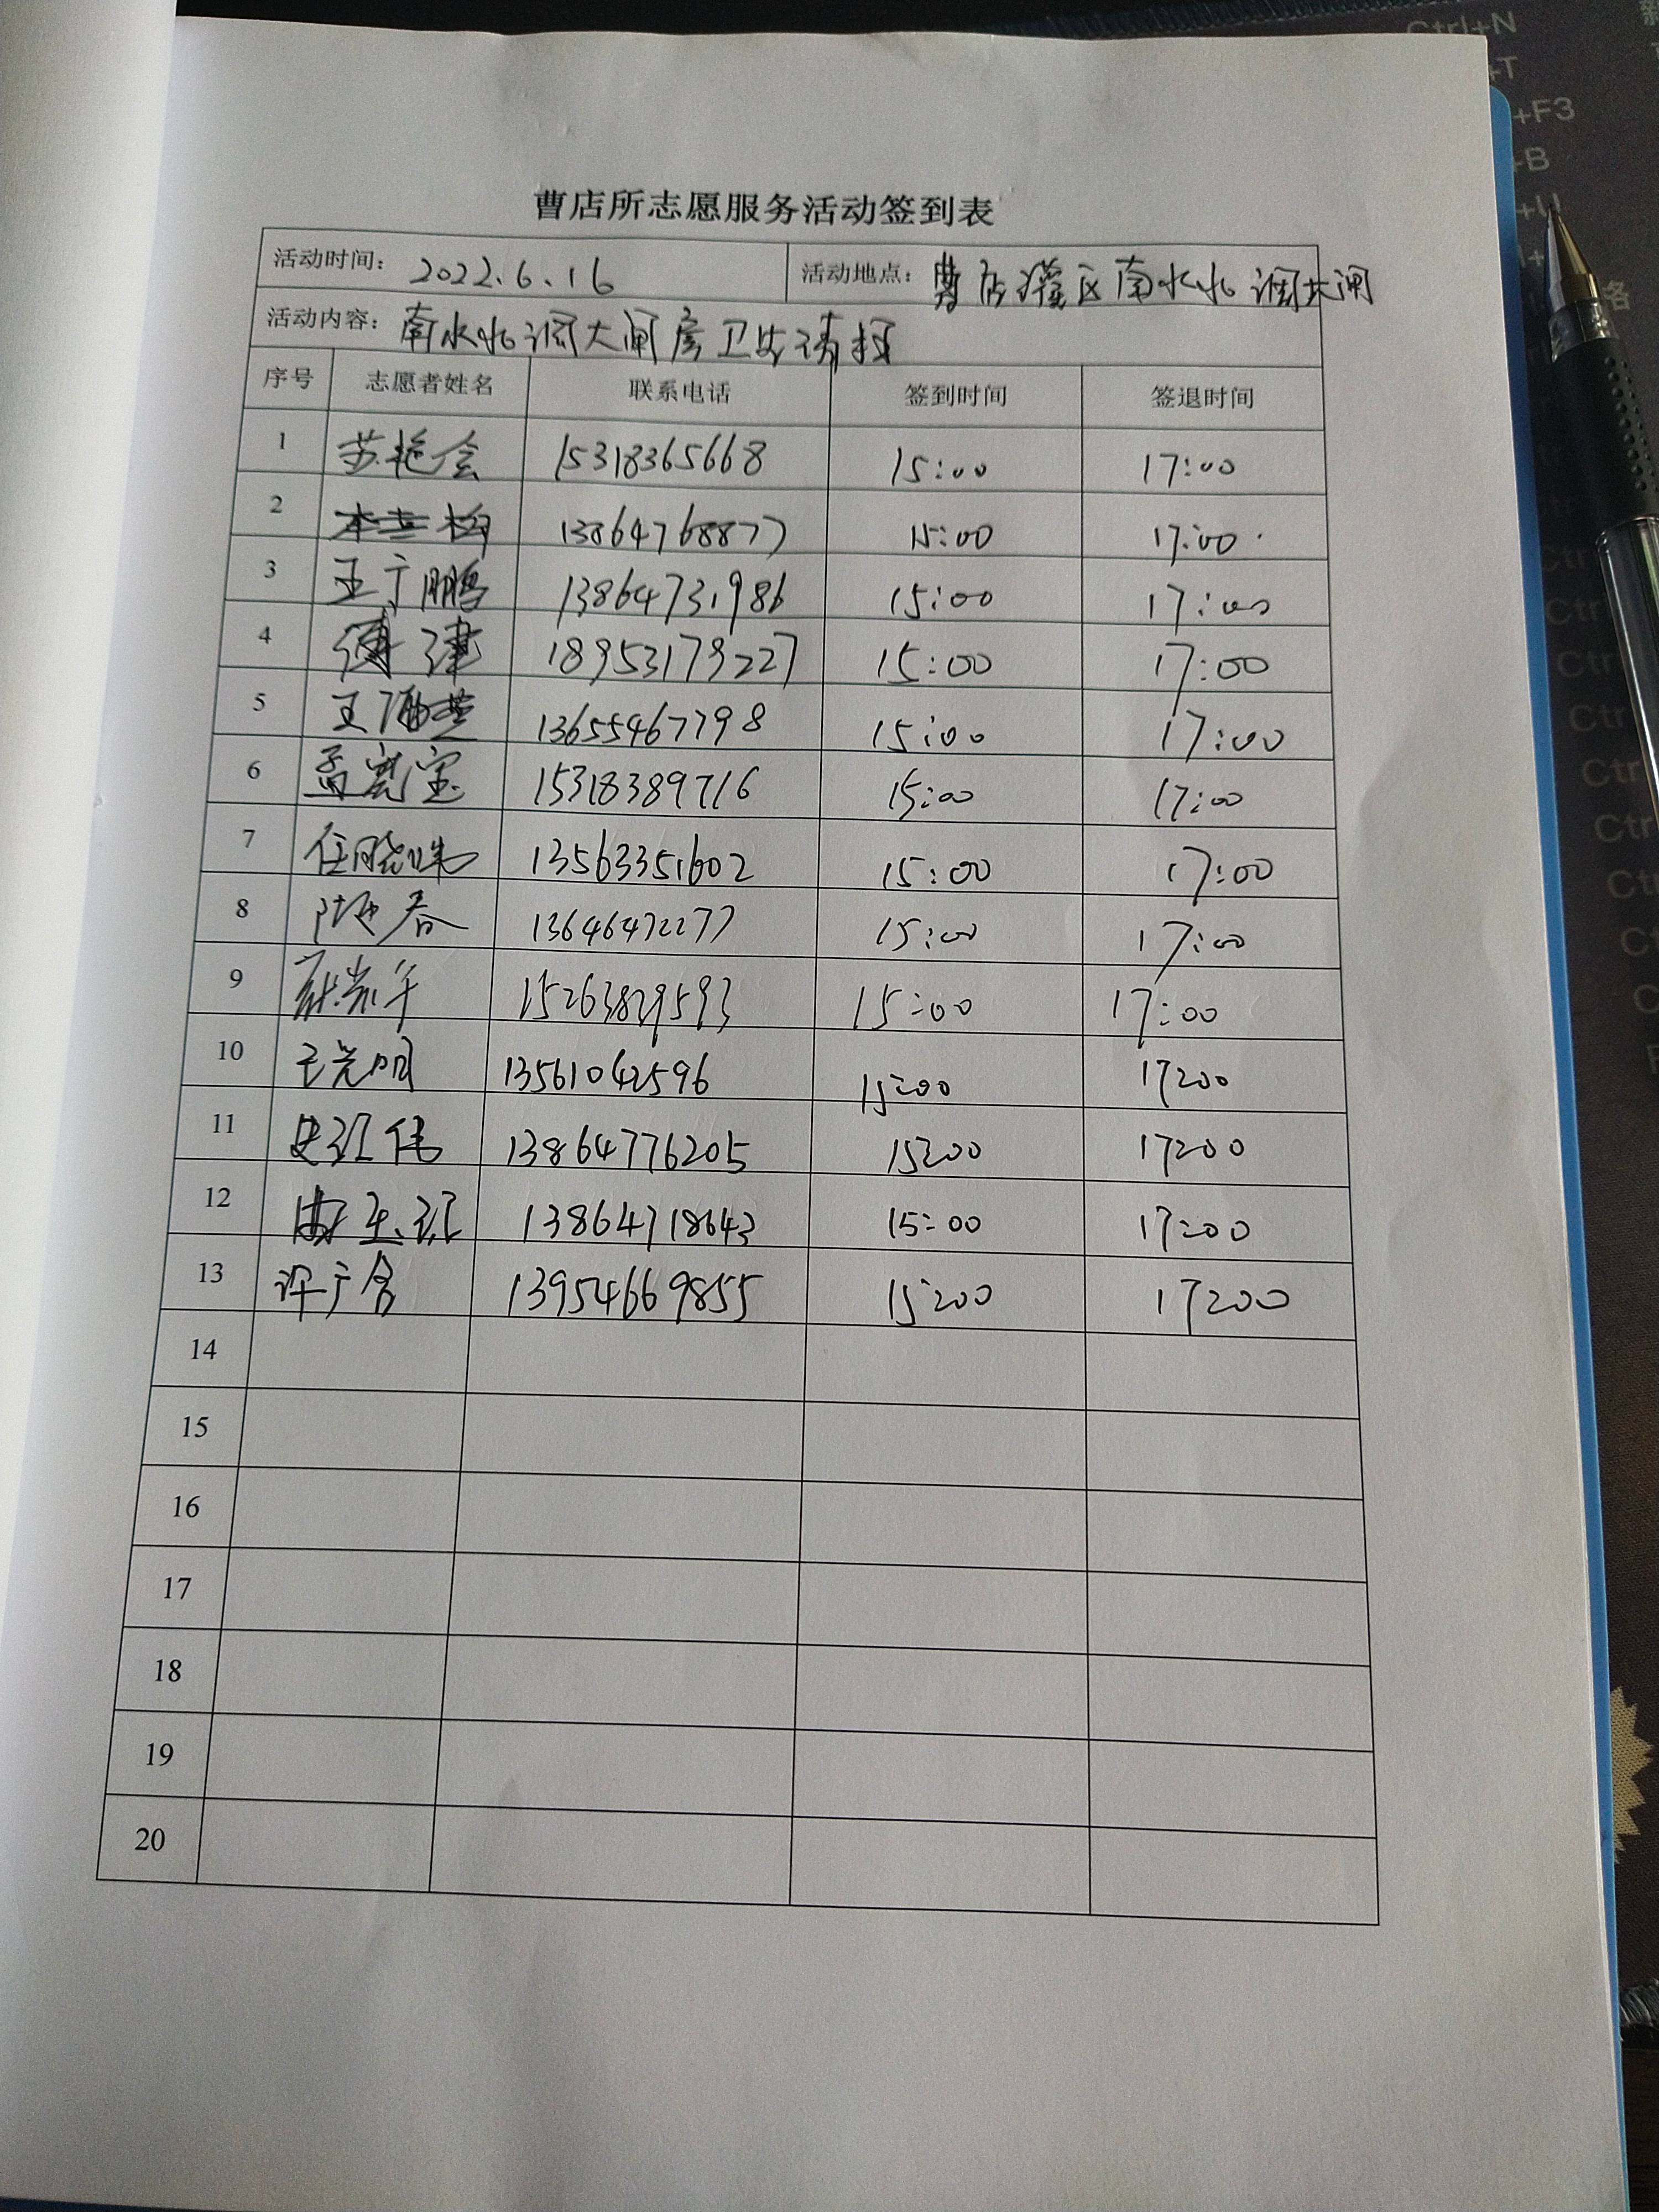 曹店所志愿服务活动签到表
活动时间: 2022.6.16 活动地点: 曹店灌区南水北调大闸
活动内容: 南水北调大闸房卫生清扫
序号 志愿者姓名 联系电话 签到时间 签退时间
1 苏艳会 15318365668 15:00 17:00
2 13864768877 15:00 17:00
3 王于鹏 13864731986 15:00 17:00
4 傅津 18953179227 15:00 17:00
5 王 13655467798 15:00 17:00
6 孟宪宝 15318389716 15:00 17:00
7 任晓姝 13563351602 15:00 17:00
8 春 13646472277 15:00 17:00
9 15263829593 15:00 17:00
10 王光明 13561042596 15:00 17:00
11 伟 13864776205 15:00 17:00
12 13864718643 15:00 17:00
13 许广会 13954669855 15:00 17:00
14
15
16
17
18
19
20
Ctrl+N
+T
+F3
+B
+U